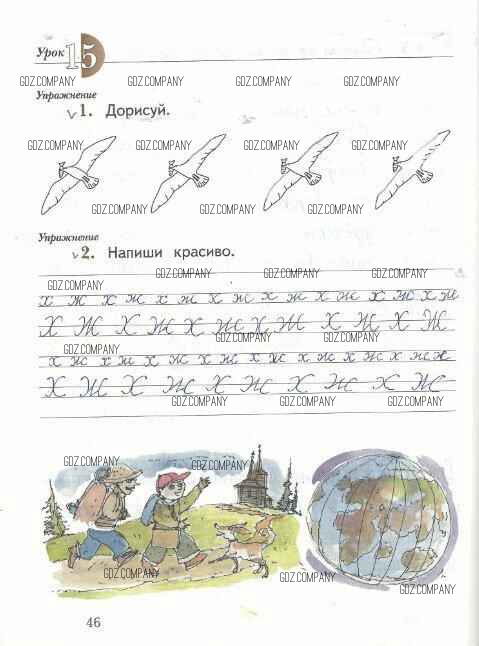 Урок 15
GDZ.COMPANY GDZ.COMPANY GDZ.COMPANY GDZ.COMPANY
Упражнение
√1. Дорисуй.
GDZ.COMPANY GDZ.COMPANY GDZ.COMPANY GDZ.COMPANY
GDZ.COMPANY GDZ.COMPANY GDZ.COMPANY
Упражнение
√2. Напиши красиво.
GDZ.COMPANY GDZ.COMPANY GDZ.COMPANY
GDZ.COMPANY
х ж х ж х ж х ж х ж х ж х ж х ж
Х Ж Х Ж Х Ж Х Ж Х Ж Х Ж
GDZ.COMPANY GDZ.COMPANY GDZ.COMPANY
GDZ.COMPANY
х ж х ж х ж х ж х ж х ж х ж х ж ж
Х Ж Х Ж Х Ж Х Ж Х Ж
GDZ.COMPANY GDZ.COMPANY GDZ.COMPANY
GDZ.COMPANY GDZ.COMPANY
GDZ.COMPANY GDZ.COMPANY GDZ.COMPANY
GDZ.COMPANY
46